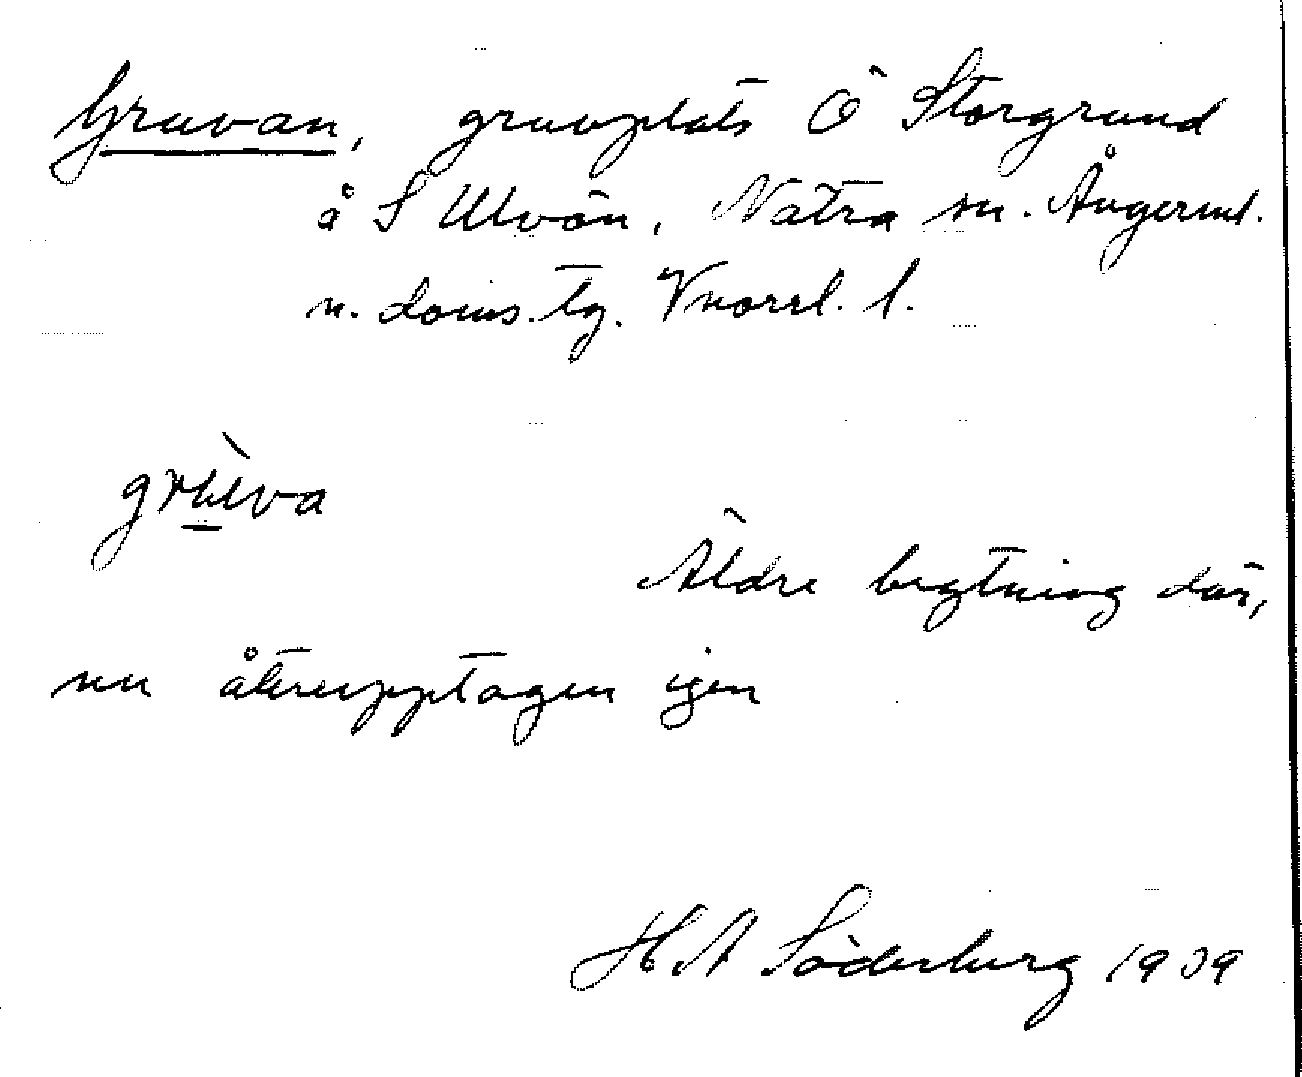 Gruvan, gruvplats Ö Storgrund
å S Ulvön, Nätra sn. Ångerml.
n. doms. tg. Vnorrl. l.
grùva
Äldre brytning där,
nu återupptagen igen
H A Söderberg 1939